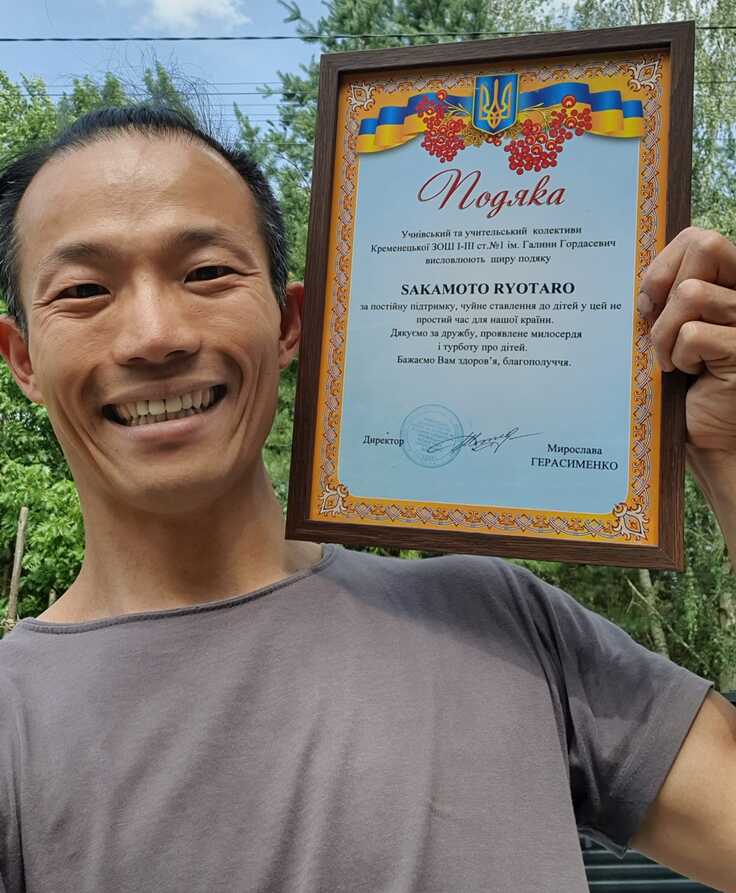 Подяка
Учнівський та учительський колективи
Кременецької ЗОШ І-ІІІ ст.№1 ім. Галини Гордасевич
висловлюють щиру подяку
SAKAMOTO RYOTARO
за постійну підтримку, чуйне ставлення до дітей у цей не
простий час для нашої країни.
Дякуємо за дружбу, проявлене милосердя
і турботу про дітей.
Бажаємо Вам здоров'я, благополуччя.
Директор
Мирослава
ГЕРАСИМЕНКО